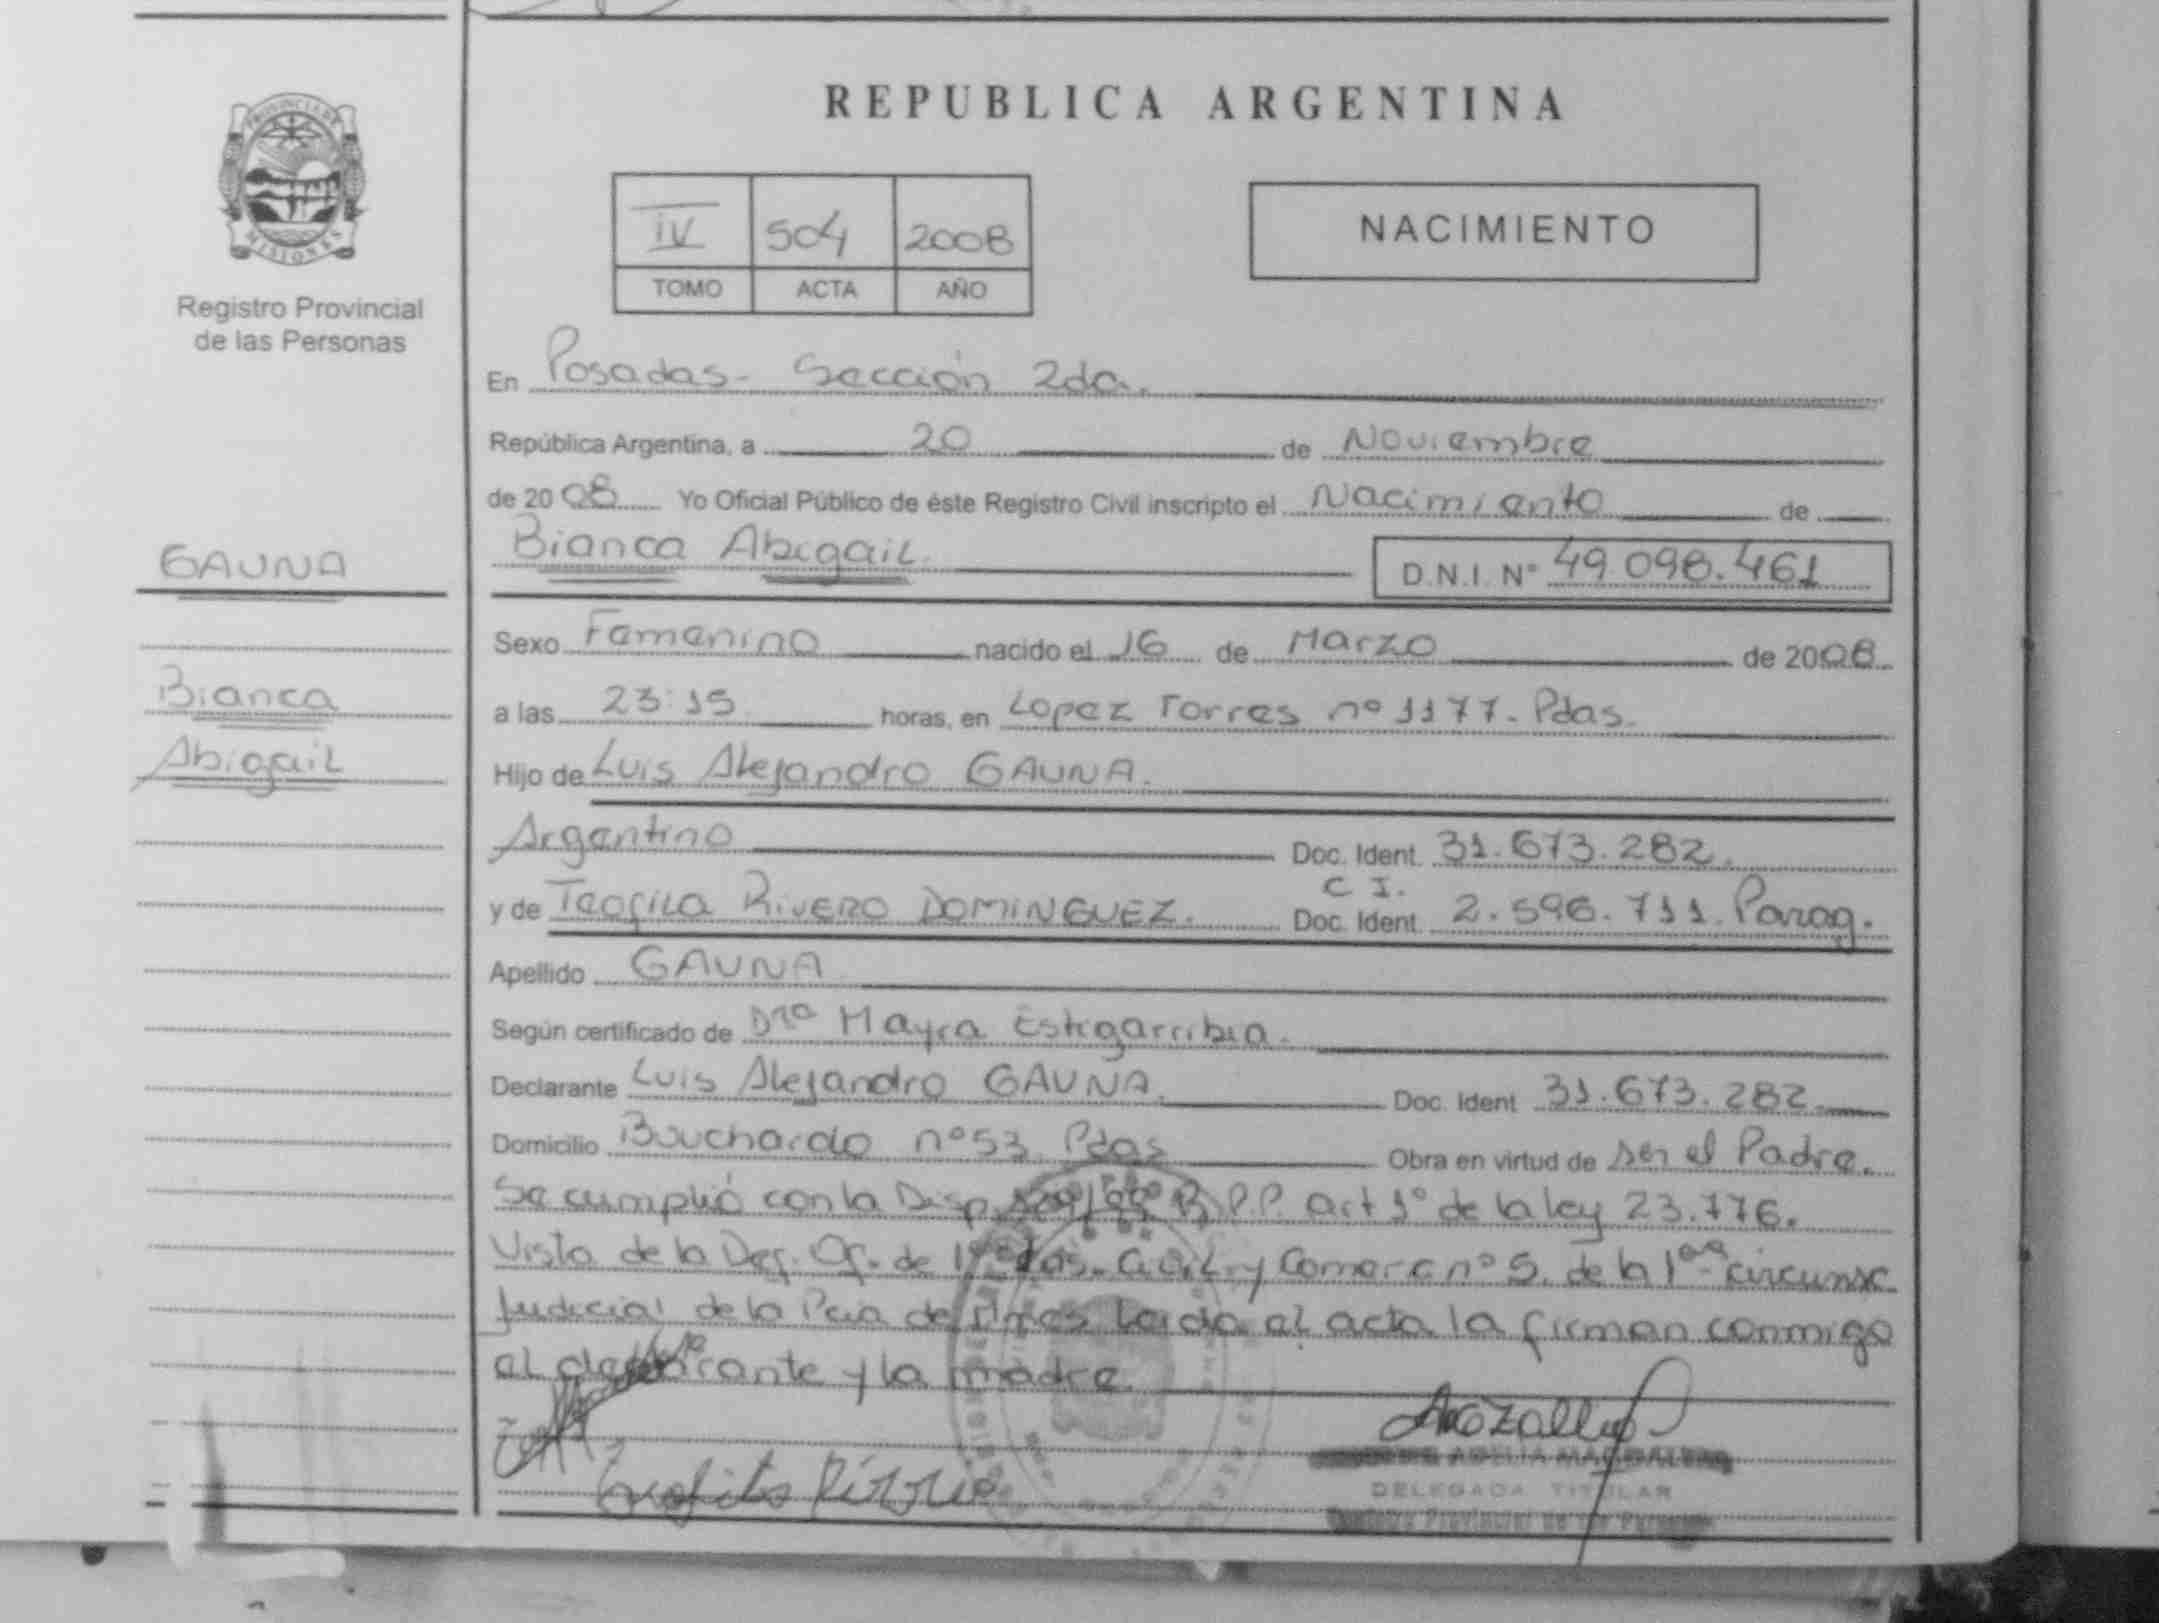 REPUBLICA ARGENTINA
PROVINCIA DE
MISIONES
Registro Provincial
de las Personas
IV 504 2008
TOMO ACTA AÑO
NACIMIENTO
En Posadas- Sección 2da.
República Argentina, a 20 de Noviembre
de 2008 Yo Oficial Público de éste Registro Civil inscripto el Nacimiento de
GAUNA
Bianca Abigail. D.N.I. Nº 49.098.461
Sexo Femenino nacido el 16 de Marzo de 2008
Bianca
a las 23:15 horas, en Lopez Torres nº 1177. Pdas.
Abigail
Hijo de Luis Alejandro GAUNA.
Argentino Doc. Ident. 31.673.282.
C I.
y de Teofila RIVERO DOMINGUEZ. Doc. Ident. 2.596.711. Parag.
Apellido GAUNA
Según certificado de Drª Mayra Estigarribia.
Declarante Luis Alejandro GAUNA. Doc. Ident 31.673.282.
Domicilio Bouchardo nº 53. Pdas Obra en virtud de ser el Padre.
Se cumplió con la Disp. R.P.P. art 1º de la ley 23.776.
Vista de la Def. Of. de Civil y Comerc nº 5. de la 1ª circunsc
Judicial de la Pcia de Mnes Leida el acta la firman conmigo
el declarante y la madre.
ADELIA MAGDALENA
DELEGADA TITULAR
Registro Provincial de las Personas